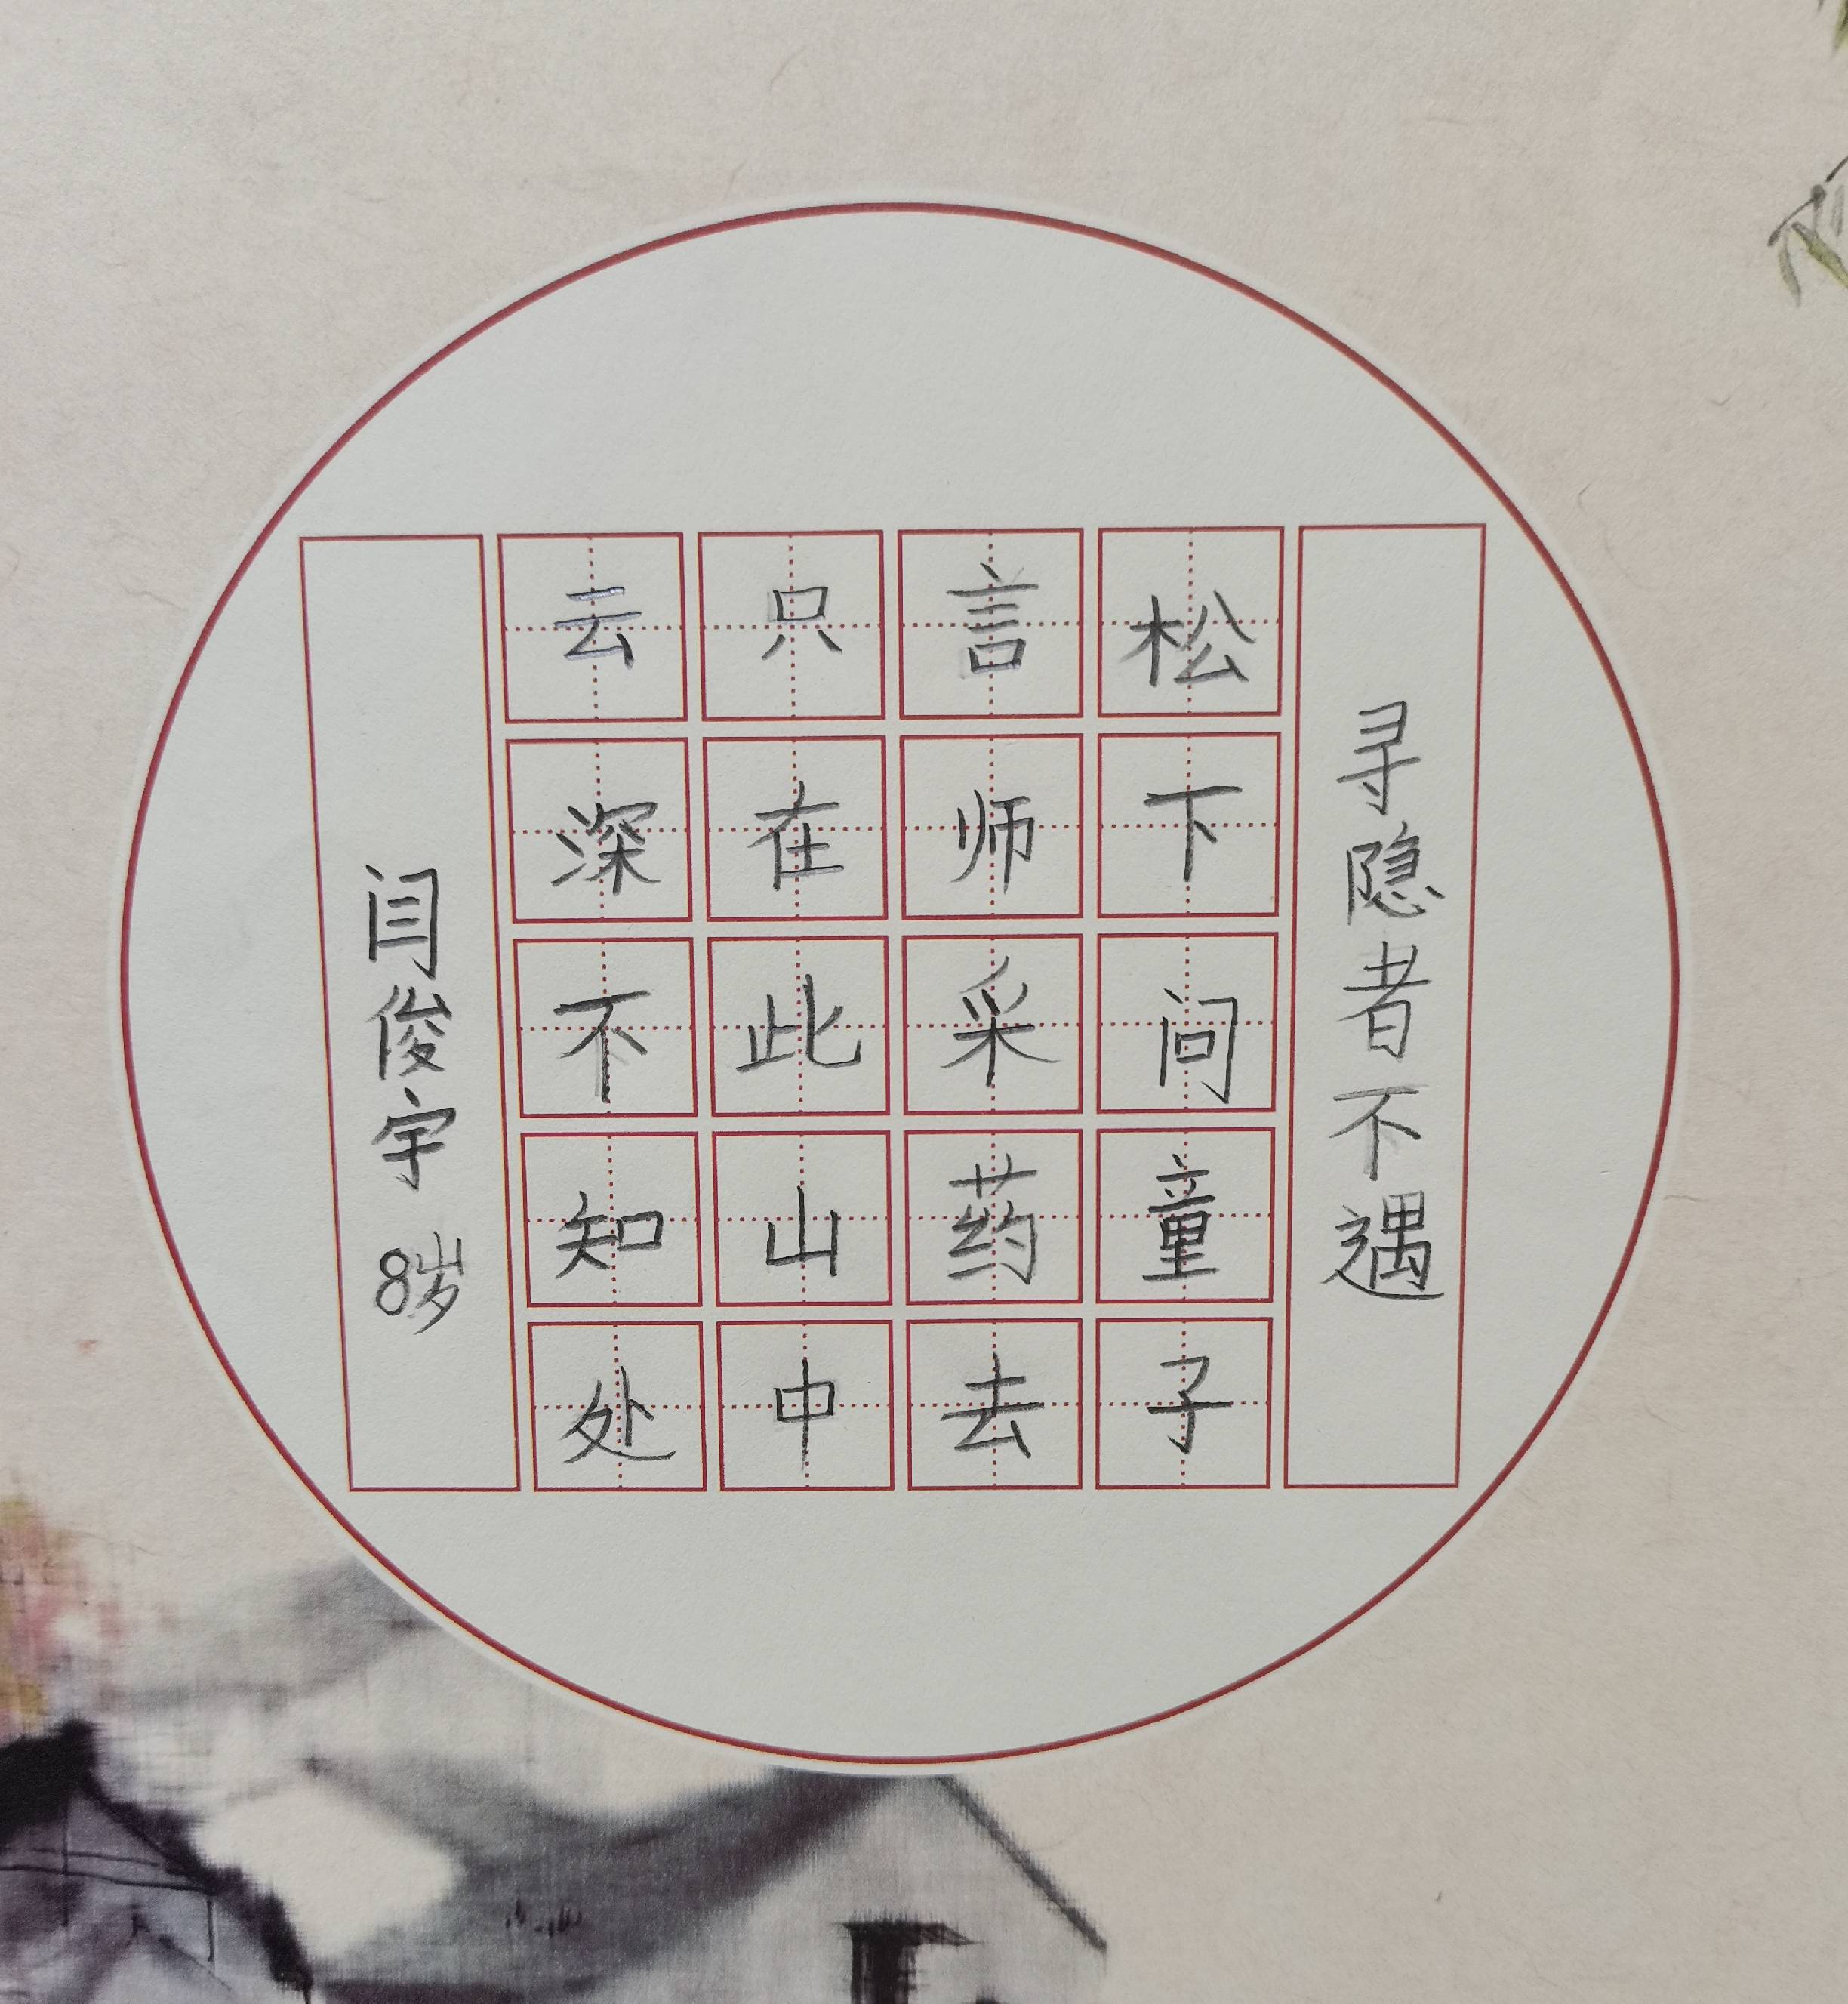 寻隐者不遇
松下问童子
言师采药去
只在此山中
云深不知处
闫俊宇 8岁